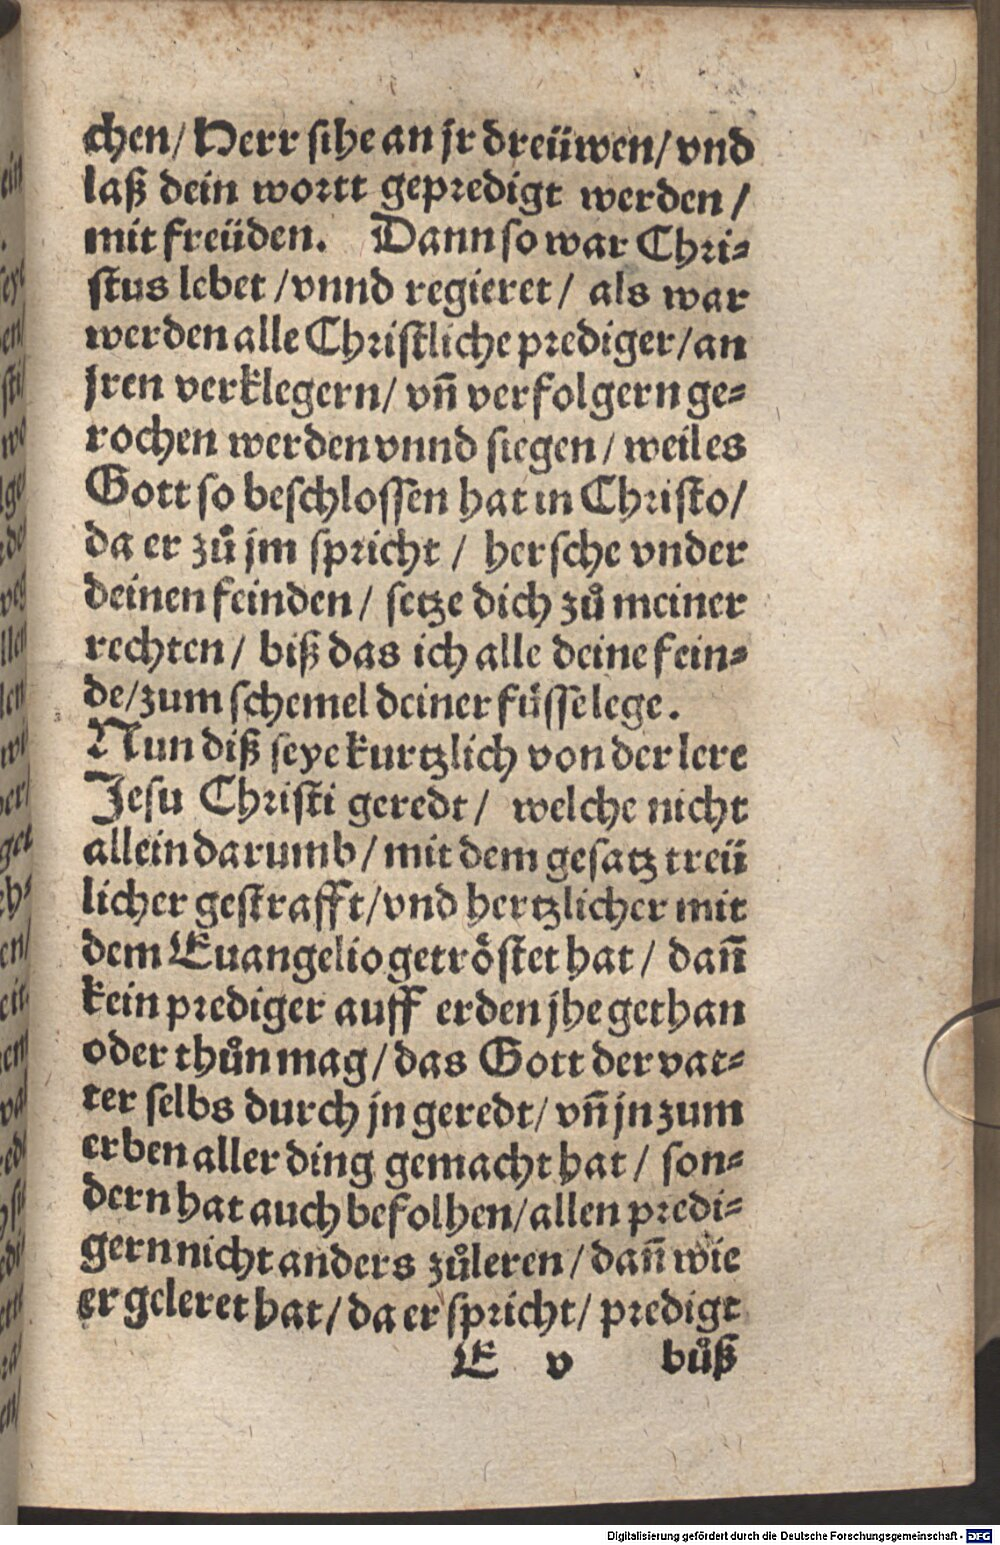 chen/ Herr sihe an jr dreüwen/ vnd
laß dein wortt gepredigt werden/
mit freüden. Dann so war Chri-
stus lebet/ vnnd regieret/ als war
werden alle Christliche prediger/ an
jren verklegern/ vñ verfolgern ge-
rochen werden vnnd siegen/ weil es
Gott so beschlossen hat in Christo/
da er zů jm spricht/ hersche vnder
deinen feinden/ setze dich zů meiner
rechten/ biß das ich alle deine fein-
de/ zum schemel deiner füsse lege.
Nun diß seye kurtzlich von der lere
Jesu Christi geredt/ welche nicht
allein darumb/ mit dem gesatz treü
licher gestrafft/ vnd hertzlicher mit
dem Euangelio getröstet hat/ dañ
kein prediger auff erden jhe gethan
oder thůn mag/ das Gott der vat-
ter selbs durch jn geredt/ vñ jn zum
erben aller ding gemacht hat/ son-
dern hat auch befolhen/ allen predi-
gern nicht anders zůleren/ dañ wie
er geleret hat/ da er spricht/ predigt
E v bůß
Digitalisierung gefördert durch die Deutsche Forschungsgemeinschaft - DFG